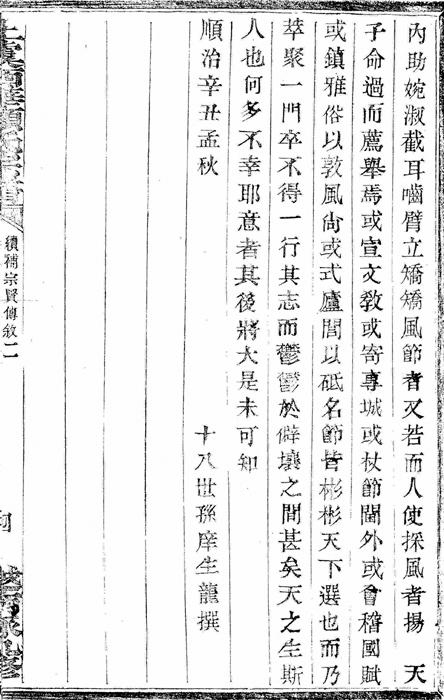 內助婉淑截耳嚙臂立矯矯風節者又若而人使採風者揚 天
子命過而薦舉焉或宣文敎或寄專城或杖節閫外或會稽國賦
或鎮雅俗以敦風尙或式廬閭以砥名節皆彬彬天下選也而乃
萃聚一門卒不得一行其志而鬱鬱於僻壤之間甚矣天之生斯
人也何多不幸耶意者其後將大是未可知
順治辛丑孟秋
十八世孫庠生龍撰
續補宗賢傳敘 二